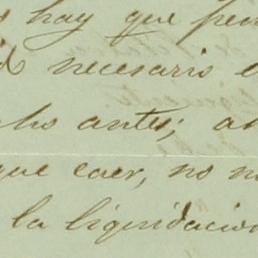 hay que pen
necesario
antes; a
que caer, no
la liquidacion